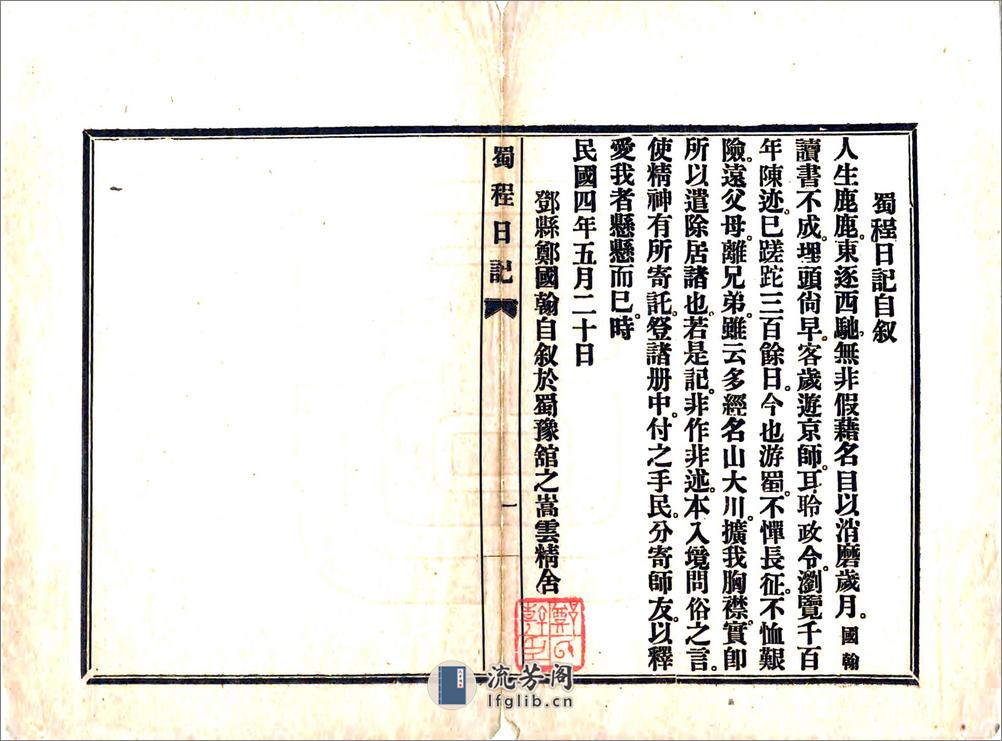 蜀程日記自叙
人生鹿鹿。東逐西馳。無非假藉名目以消磨歲月。國翰
讀書不成。埋頭尙早。客歲遊京師。耳聆政令。瀏覽千百
年陳迹。已蹉跎三百餘日。今也游蜀。不憚長征。不恤艱
險。遠父母。離兄弟。雖云多經名山大川。擴我胸襟。實卽
所以遣除居諸也。若是記。非作非述。本入境問俗之言。
使精神有所寄託。登諸册中。付之手民。分寄師友。以釋
愛我者懸懸而已。時
民國四年五月二十日
鄧縣鄭國翰自叙於蜀豫舘之嵩雲精舍
蜀程日記
一
流芳阁
lfglib.cn